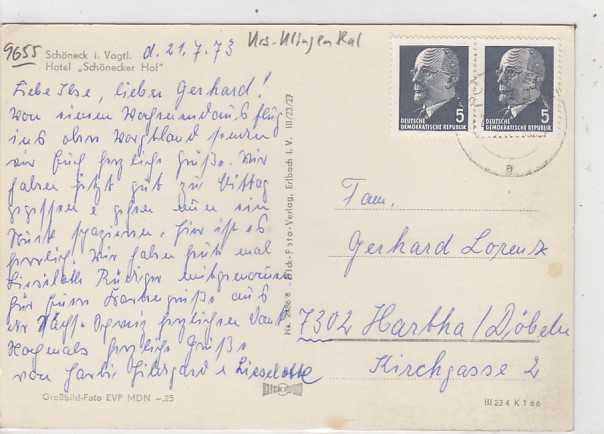 9655
Krs. Klingenthal
Schöneck i. Vogtl. d. 21.7.73
Hotel „Schönecker Hof"
Liebe Ilse, lieber Gerhard!
Von einem Wochenendausflug
ins obere Vogtland senden
wir Euch herzliche Grüße. Wir
haben jetzt gut zu Mittag
gegessen u. gehen nun ein
Stück spazieren. Hier ist es
herrlich! Wir haben heut mal
Lieselotte Rüdiger mitgenommen
für Eure Kartengrüße aus
der Sächs. Schweiz herzlichen Dank
Nochmals herzliche Grüße
von Hildegard u. Lieselotte
Großbild-Foto EVP MDN -.25
III/23/27
Bick-Foto-Verlag, Erlbach i. V.
5
DEUTSCHE
DEMOKRATISCHE REPUBLIK
5
DEUTSCHE
DEMOKRATISCHE REPUBLIK
a
Fam.
Gerhard Lorenz
7302 Hartha/Döbeln
Kirchgasse 2
III 23 4 K 1 66